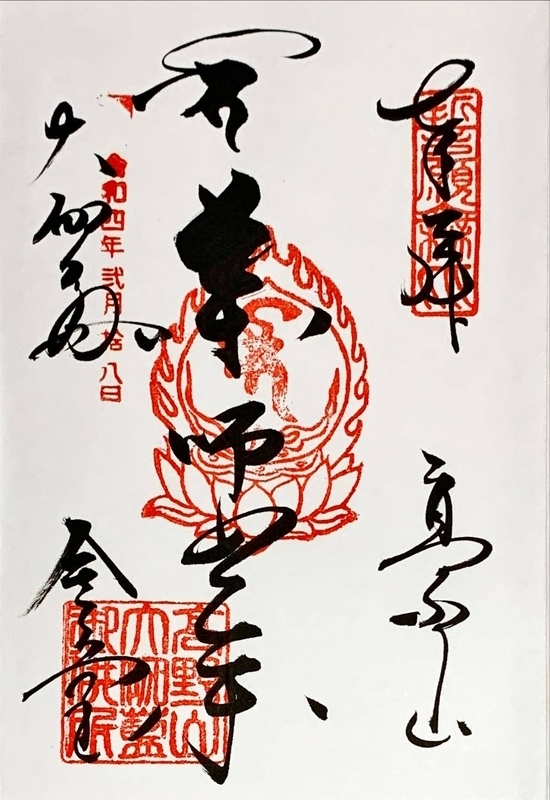 奉拝
高野山
薬師如来
大伽藍
金堂
令和四年弐月拾八日
高野山
大伽藍
御供所